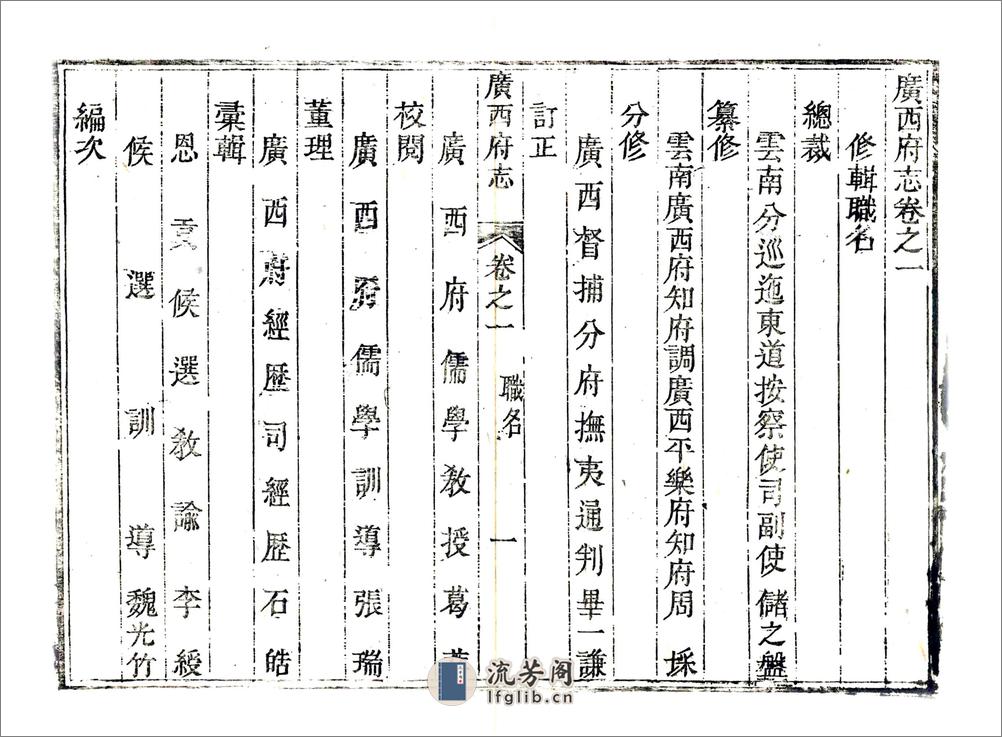 廣西府志卷之一
修輯職名
總裁
雲南分巡迤東道按察使司副使儲之盤
纂修
雲南廣西府知府調廣西平樂府知府周採
分修
廣西督捕分府撫夷通判畢一謙
訂正
廣西府志 卷之一 職名 一
廣西府儒學教授葛
校閱
廣西府儒學訓導張瑞
董理
廣西府經歷司經歷石皓
彙輯
恩貢候選教諭李綬
候選訓導魏光竹
編次
流芳阁
lfglib.cn